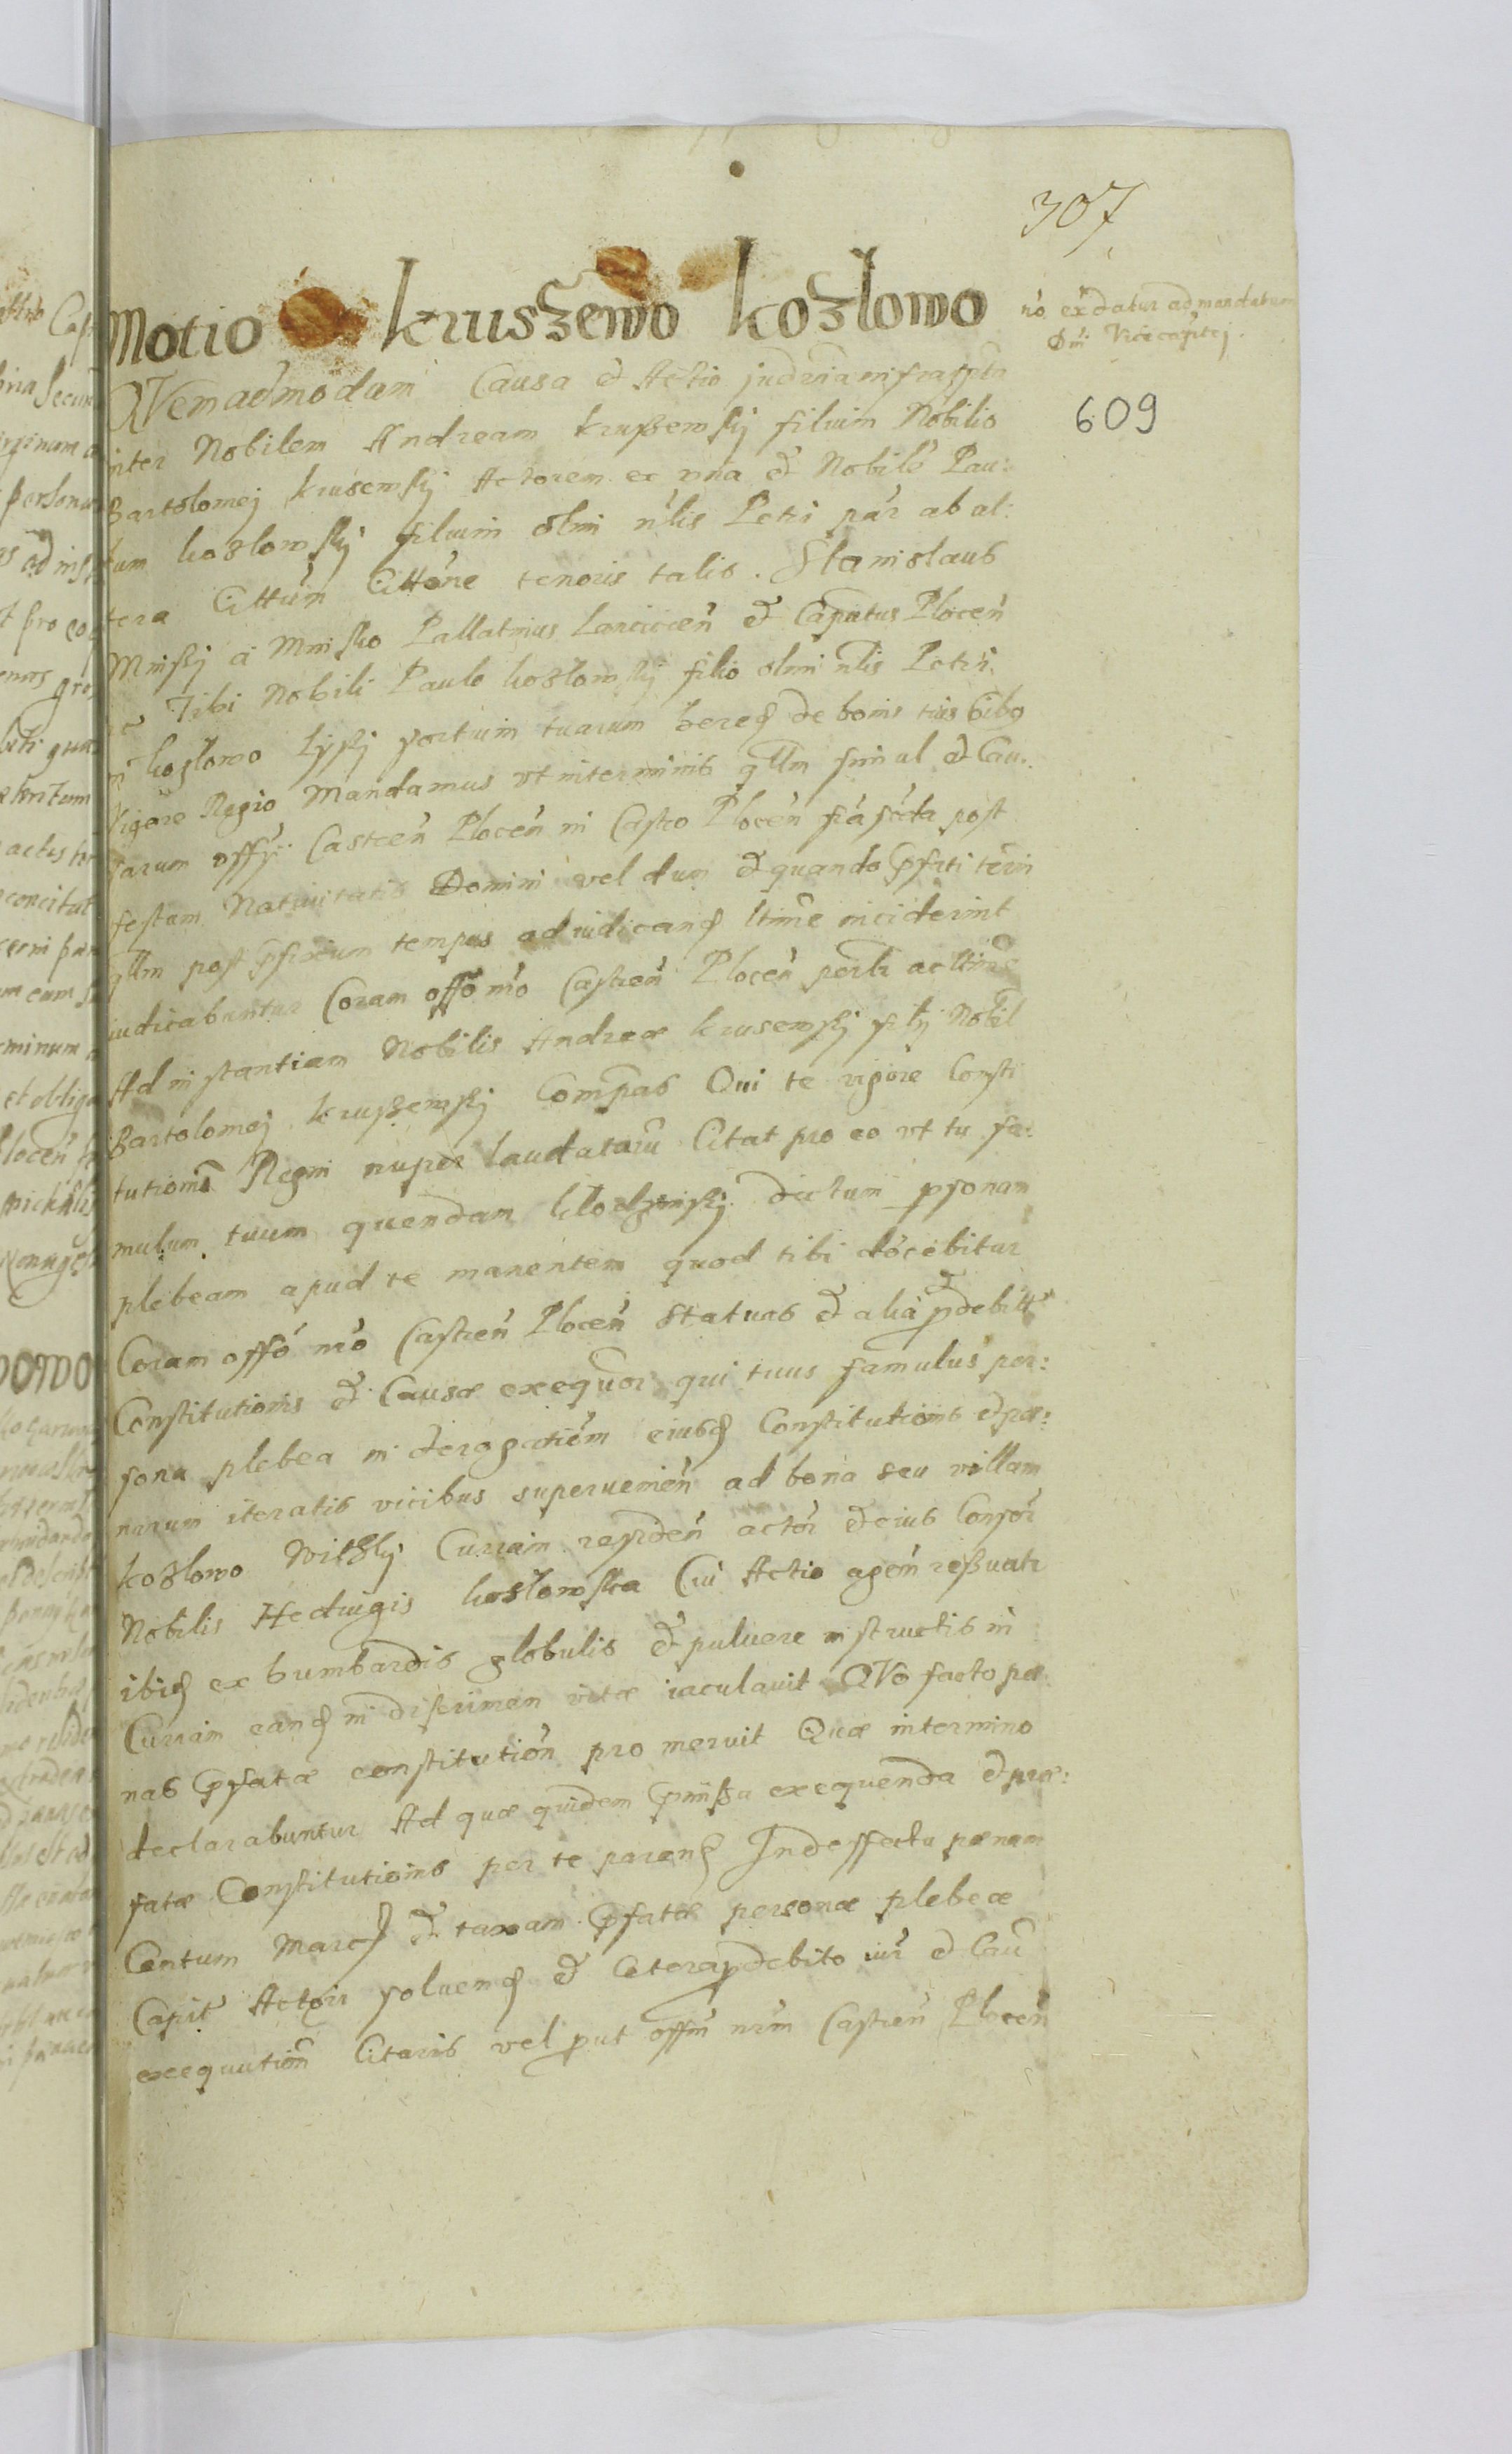 307
Motio Kruszewo Kozlowo
nō exdatur ad mandatum
Dni Vicecaptej.
609
QVemadmodum Causa et Actio judria infrascpta
inter Nobilem Andream Kruszewskj filium Nobilis
Bartolomej Krusewskj Actorem ex vna et Nobile Pau:
lum Kozlowskj filium olim nlis Petri par ab al:
tera Cittum Cittone tenoris talis. Stanislaus
Minskj a Minsko Pallatinus Lancicien et Capitus Plocen
Tibi Nobili Paulo Kozlowskj filio olim nlis Petri
Kozlowo Lyskj sortium tuarum hered de bonis tuis oibs
Vigore Regio Mandamus vt in terminis qllm simul et Cau:
sarum offij Castren Plocen in Castro Plocen fia scda post
festum Natiuitatis Domini vel dum et quando pfati term
qllm post pfixum tempus ad iudicand ltime inciderint
iudicabuntur Coram offo nro Castren Plocen perlr ac ltime
Ad instantiam Nobilis Andreæ Krusewskj filij Nobil
Bartolomej Kruszewskj Compas Qui te vigore Consti
tutionis Regni nuper laudatam Citat pro eo vt tu fa:
mulum tuum quendam dictum psonam
plebeam apud te manentem quod tibi docebitur
Coram offo nro Castren Plocen Statuas et alia p debitt
Constitutionis et Causæ exequor qui tuus famulus per:
sona plebea in derogationem eiusd Constitutionis et pœ:
narum iteratis vicibus superuenien ad bona seu villam
Kozlowo Curiam residen actor et eius Consor
Nobilis Hedvigis Kozlowska Cui Actio agen reßuatr
ibid ex bumbardis globulis et puluere instructis in
Curiam eand in discrimen vitæ iaculauit QVo facto pœ
nas pfatæ constitution pro meruit Quæ in termino
declarabuntur Ad quæ quidem pmißa exequenda et præ:
fatæ Constitutionis per te parend In deffectu pœnam
Centum Marc et taxam pfatæ personæ plebeæ
Capit Actori soluend et Cetera p debito iur et Cau
exequution Citaris vel put offm nrm Castren Plocen